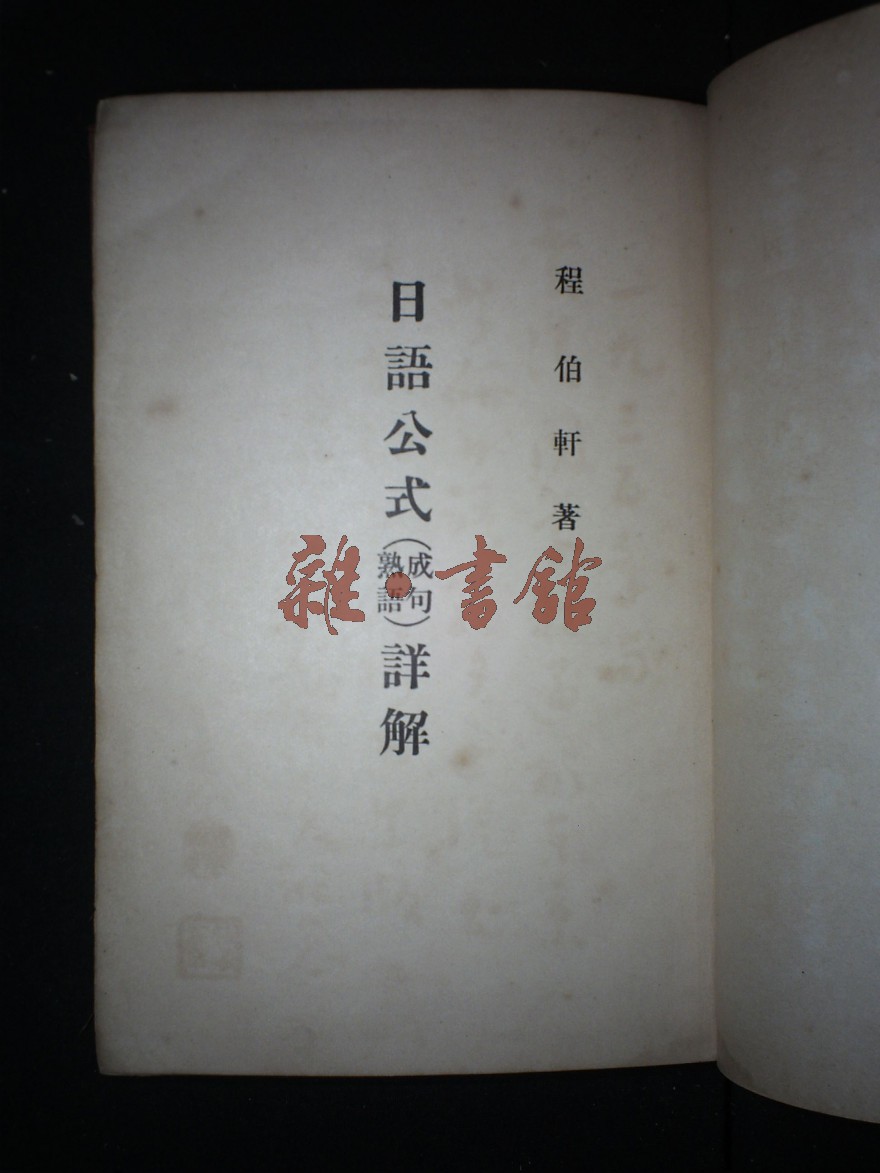 程伯軒著
日語公式（成句熟語）詳解
雜·書館